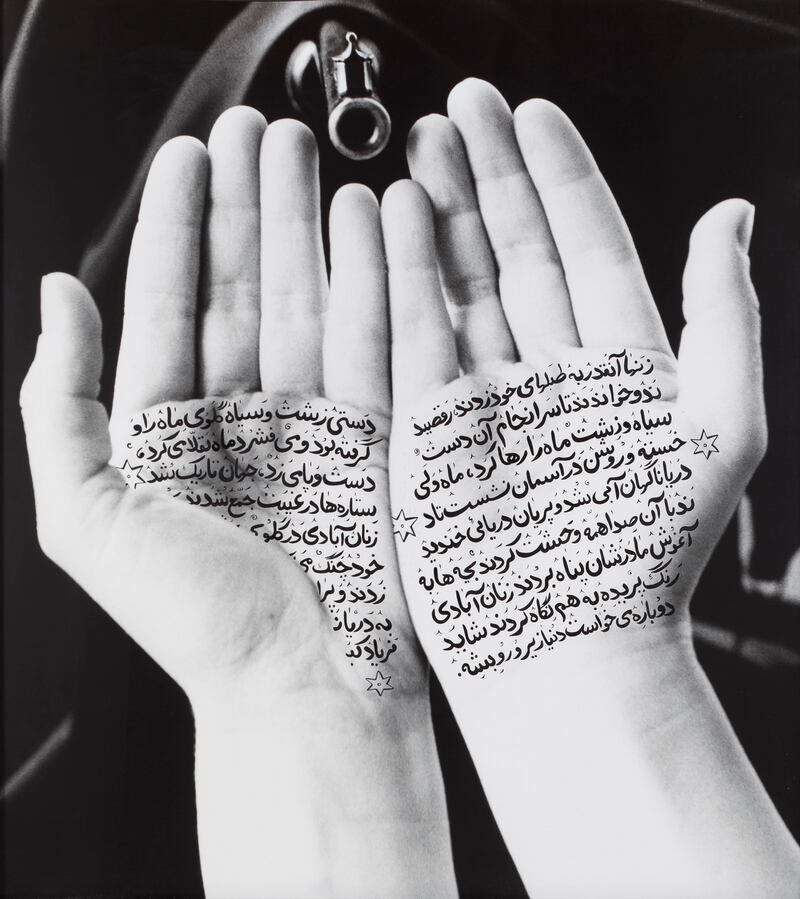 دستی زشت و سیاه گلوی ماه را و
گرفته بود و می فشرد ماه تقلا می کرد،
دست و پا می زد، جهان تاریک شد
ستاره ها در غیبت جمع شدند
زنان آبادی در گلوی
خود چنگ
زدند و
به دریا
فریاد
زنها آنقدر به طبلهای خود زدند، رقصید
ند و خواندند تا سرانجام آن دست
سیاه و زشت ماه را رها کرد، ماه ولی
خسته و روشن در آسمان نشست تا د
دریا ناگهان آبی شد و پریان دریائی خندید
ند با آن صدا همه وحشت کردند بچه ها به
آغوش مادرشان پناه بردند زنان آبادی
رنگ پریده به هم نگاه کردند شاید
دوباره می خواست دنیا زیر و رو بشه.